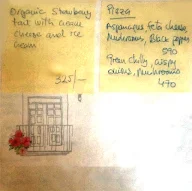 Organic Strawberry
tart with cream
cheese and Ice
cream
325/-
Pizza
Asparagus, feta cheese,
Mushrooms, Black pepper
590
Green chilly, crispy
onions, Mushrooms
490